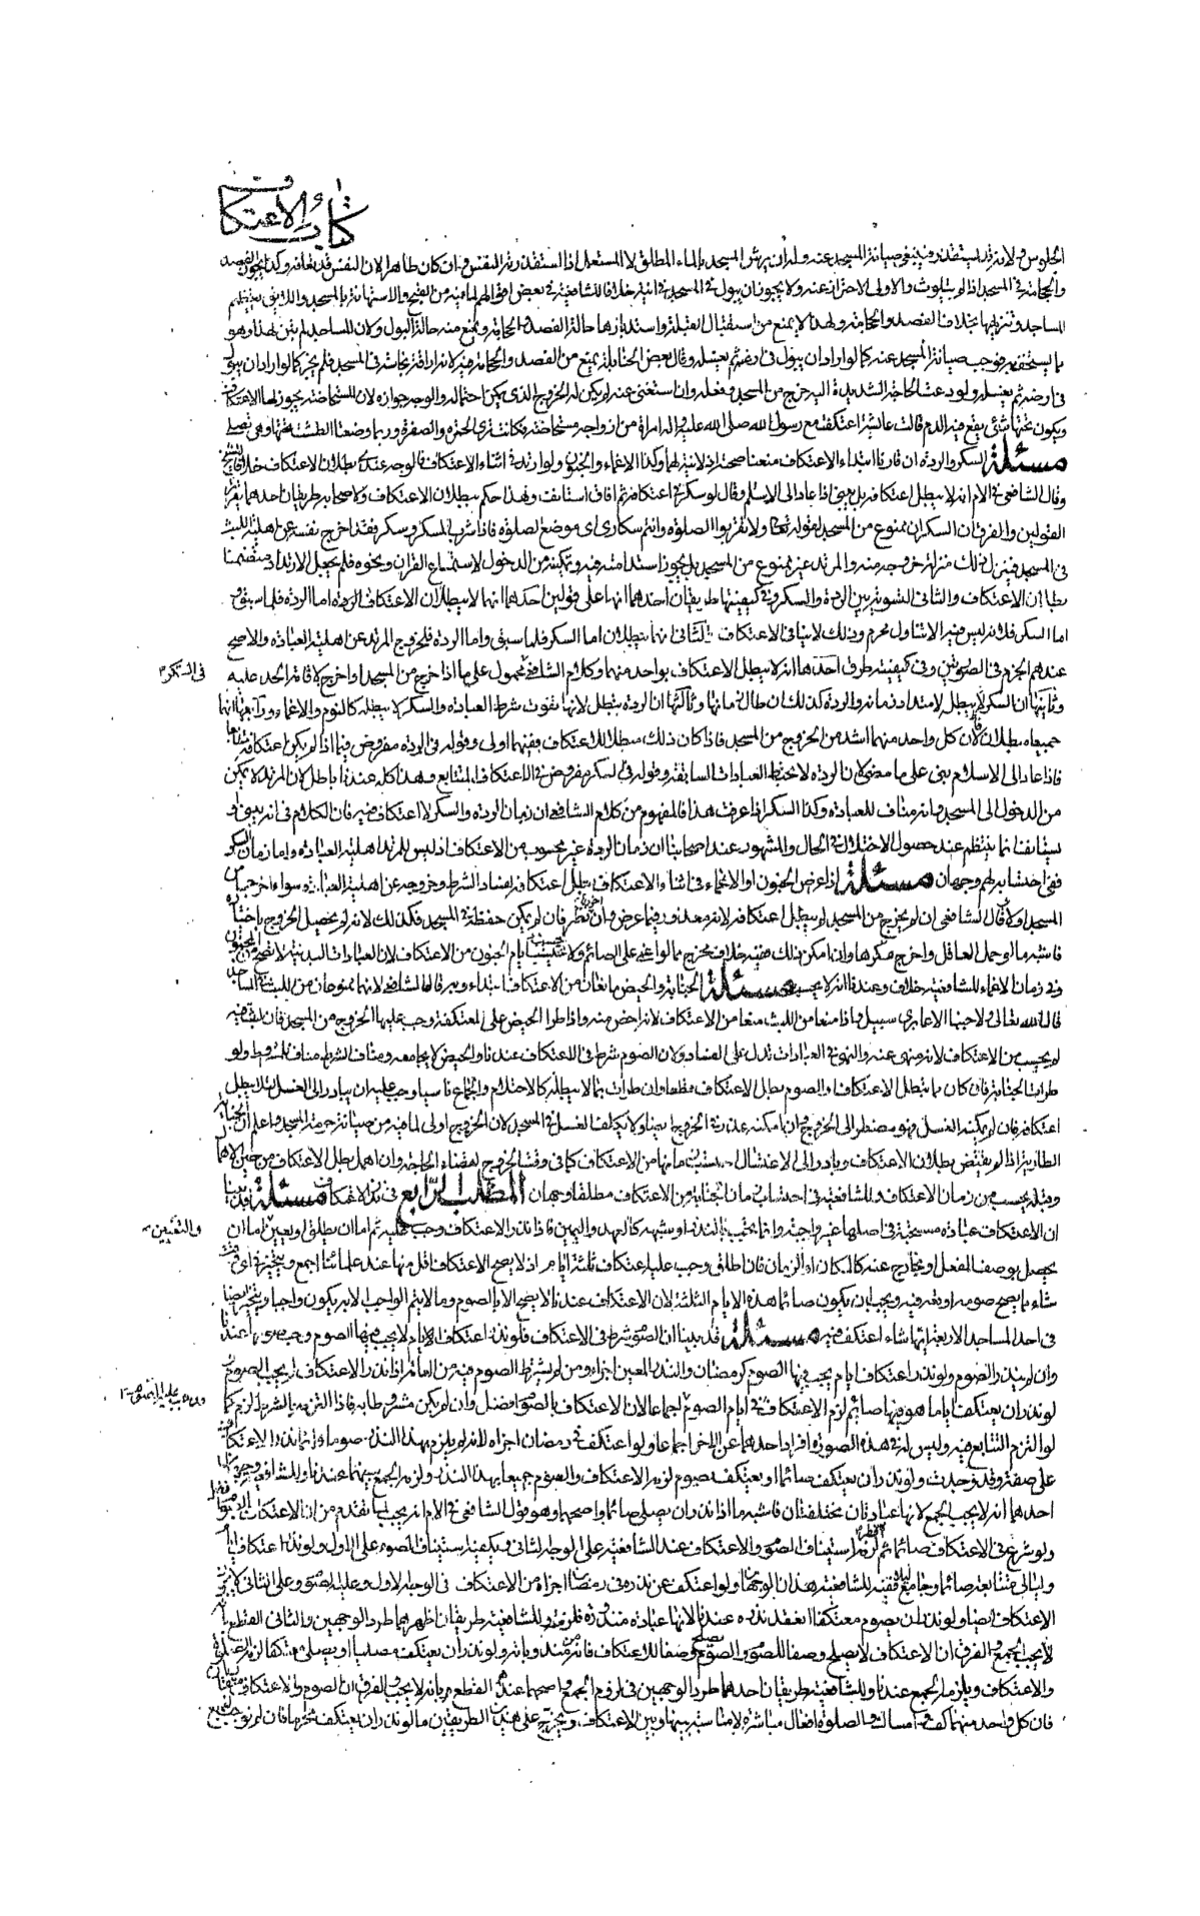 كتاب الاعتكاف
الجلوس ولانه قد يستقذر فينبغي صيانة المسجد عنه وله ان يرش المسجد بالماء المطلق لا المستعمل اذا استقذرته النفس وان كان طاهرا لان النفس قد تعافه وكذا يجوز الفصد
والحجامة في المسجد اذا لم يتلوث والاولى الاحتراز عنه ولا يجوز ان يبول في المسجد في آنية خلافا للشافعية في بعض اقوالهم لما فيه من القبح والاستهانة بالمسجد واللائق تعظيم
المساجد وتنزيهها بخلاف الفصد والحجامة ولهذا لا يمنع من استقبال القبلة واستدبارها حالة الفصد والحجامة ويمنع منه حالة البول ولان المساجد لم تبن لهذا وهو
مما يستخفى به فوجب صيانة المسجد عنه كما لو اراد ان يبول في ارضه ثم يغسله وقال بعض الحنابلة يمنع من الفصد والحجامة فيه لانه اراقة نجاسة في المسجد فلم يجز كما لو اراد ان يبول
في ارضه ثم يغسله ولو دعت الحاجة الشديدة اليه خرج من المسجد وفعله وان استغنى عنه لم يكن له الخروج الذي يمكن احتماله والوجه جوازه لان المستحاضة يجوز لها الاعتكاف
ويكون تحتها شئ يقع فيه الدم قالت عائشة اعتكفت مع رسول الله صلى الله عليه واله امراة من ازواجه مستحاضة فكانت ترى الحمرة والصفرة وربما وضعنا الطشت تحتها وهي تصلي
مسئلة السكر والردة ان قارنا ابتداء الاعتكاف منعنا صحته اذ لا نية لهما وكذا الاغماء والجنون ولو ارتد في اثناء الاعتكاف فالوجه عندي بطلان الاعتكاف خلافا للشيخ
وقال الشافعي في الام انه لا يبطل اعتكافه بل يبني اذا عاد الى الاسلام وقال لو سكر في اعتكافه ثم افاق استانف وهذا حكم ببطلان الاعتكاف ولاصحابه طريقان احدهما تقرير
القولين والفرق ان السكران ممنوع من المسجد لقوله تعالى ولا تقربوا الصلوة وانتم سكارى اى موضع الصلوة فاذا شرب المسكر وسكر فقد اخرج نفسه عن اهلية اللبث
في المسجد فنزل ذلك منزلة خروجه منه والمرتد غير ممنوع من المسجد بل يجوز استدامته فيه وتمكينه من الدخول لاستماع القرآن ونحوه فلم يجعل الارتداد متضمنا
بطلان الاعتكاف والثاني التسوية بين الردة والسكر وفي كيفيتها طريقان احدهما انها على قولين احدهما انهما لا يبطلان الاعتكاف الردة اما الردة فلما سبق و
اما السكر فلانه ليس فيه الا تناول محرم وذلك لا ينافي الاعتكاف والثاني انهما يبطلان اما السكر فلما سبق واما الردة فلخروج المرتد عن اهلية العبادة والاصح
عندهم الجزم في الصورتين وفي كيفيته طرق احدها انه لا يبطل الاعتكاف بواحد منهما وكلام الشافعي في السكر محمول على ما اذا خرج من المسجد او اخرج لاقامة الحد عليه
وثانيها ان السكر لا يبطله لامتداد زمانه والردة كذلك ان طال زمانها وثالثها ان الردة تبطل لانها تفوت شرط العبادة والسكر لا يبطله كالنوم والاغماء ورابعها انهما
جميعا مبطلان فان كل واحد منهما اشد من الخروج من المسجد فاذا كان ذلك مبطلا للاعتكاف فهما اولى وقوله في الردة مفروض فيما اذا لم يكن اعتكافه متتابعا
فاذا عاد الى الاسلام بنى على ما مضى لان الردة لا تحبط العبادات السابقة وقوله في السكر مفروض في الاعتكاف المتتابع وهذا كله عندنا باطل لان المرتد لا يمكن
من الدخول الى المسجد ولانه مناف للعبادة وكذا السكر اذا عرفت هذا فالمفهوم من كلام الشافعي ان زمان الردة والسكر لا اعتكاف فيه فان الكلام في انه يبنى او
يستانف انما ينتظم عند حصول الاختلال في الحال والمشهور عند اصحابنا ان زمان الردة غير محسوب من الاعتكاف اذ ليس للمرتد اهلية العبادة واما زمان السكر
ففي احتسابه لهم وجهان مسئلة اذا عرض الجنون او الاغماء في اثناء الاعتكاف بطل اعتكافه لفساد الشرط وخروجه عن اهلية العبادة وسواء اخرج من
المسجد او لا وقال الشافعي ان لم يخرج من المسجد لم يبطل اعتكافه لانه معذور فيما عرض وان اخرج نظر فان لم يكن حفظه في المسجد فكذلك لانه لم يحصل الخروج باختياره
فاشبه ما لو حمل العاقل واخرج مكرها وان امكن بذلك ففيه خلاف مخرج مما لو اغمي على الصائم ولا تحتسب ايام الجنون من الاعتكاف لان العبادات البدنية لا تصح من المجنون
وفي زمان الاغماء للشافعية خلاف وعندنا انه لا يحسب مسئلة الجنابة والحيض مانعان من الاعتكاف ابتداء وبه قال الشافعي لانهما ممنوعان من اللبث في المساجد
قال الله تعالى ولا جنبا الا عابري سبيل واذا منعا من اللبث منعا من الاعتكاف لانه اخص منه واذا طرا الحيض على المعتكفة وجب عليها الخروج من المسجد فان لبثت فيه
لم يحسب من الاعتكاف لانه منهى عنه والنهي في العبادات تدل على الفساد ولان الصوم شرط في الاعتكاف عندنا والحيض لا يجامعه ومنافي الشرط مناف للمشروط ولو
طرات الجنابة فان كان مما يبطل الاعتكاف والصوم بطل الاعتكاف مطلقا وان طرات بما لا يبطله كالاحتلام والجماع ناسيا وجب عليه ان يبادر الى الغسل لئلا يبطل
اعتكافه فان لم يمكنه الغسل فهو مضطر الى الخروج وان امكنه عذر في الخروج ايضا ولا يكلف الغسل في المسجد لان الخروج اولى لما فيه من صيانة حرمة المسجد واعلم ان الجنابة
الطارية اذا لم يقتض بطلان الاعتكاف وبادر الى الاغتسال احتسب زمانها من الاعتكاف كما في وقت الخروج لقضاء الحاجة وان اهمل بطل الاعتكاف من حين الاهمال
وقيله يحسب من زمان الاعتكاف وللشافعية في احتساب زمان الجنابة من الاعتكاف مطلقا وجهان المطلب الرابع في نذر الاعتكاف مسئلة قد بينا
ان الاعتكاف عبادة مستحبة في اصلها غير واجبة وانما يجب بالنذر او شبهه كالعهد واليمين فاذا نذر الاعتكاف وجب عليه ثم اما ان يطلق او يعين والتعيين اما ان
يحصل بوصف الفعل او بخارج عنه كالمكان او الزمان فان اطلق وجب عليه اعتكاف ثلثة ايام اذ لا يصح الاعتكاف اقل منها عند علمائنا اجمع ويتخير في اى وقت
شاء مما يصح صومه اوقعه فيه ويجب ان يكون صائما هذه الايام الثلثة لان الاعتكاف عندنا لا يصح الا بالصوم وما لا يتم الواجب الا به يكون واجبا ويتخير ايضا
في احد المساجد الاربعة ايها شاء اعتكف فيه مسئلة قد بينا ان الصوم شرط في الاعتكاف فلو نذر اعتكاف ايام لا يجب فيها الصوم وجب صومها عندنا
وان لم ينذر الصوم ولو نذر اعتكاف ايام يجب فيها الصوم كرمضان والنذر المعين اجزاه ومن لم يشترط الصوم فيه من العامة اذا نذر الاعتكاف لم يجب الصوم
لو نذر ان يعتكف اياما هو فيها صائم لزم الاعتكاف في ايام الصوم اجماعا لان الاعتكاف بالصوم افضل وان لم يكن مشروطا به فاذا التزمه بالشرط لزم كما
لو التزم التتابع فيه وليس له في هذه الصورة افراد احدهما عن الاخر اجماعا ولو اعتكف في رمضان اجزاه لانه لم يلزم بهذا النذر صوما وانما نذر الاعتكاف
على صفة وقد وجدت ولو نذر ان يعتكف صائما او يعتكف بصوم لزمه الاعتكاف والصوم جميعا بهذا النذر ولزمه الجمع بينهما عندنا وللشافعي وجهان
احدهما انه لا يجب الجمع لانها عبادتان مختلفتان فاشبه ما اذا نذر ان يصلي صائما واصحهما وهو قول الشافعي في الام انه يجب لما تقدم من ان الاعتكاف بالصوم افضل
ولو شرع في الاعتكاف صائما ثم افطر لزمه استيناف الصوم والاعتكاف عند الشافعية على الوجه الثاني ويكفيه استيناف الصوم على الاول ولو نذر اعتكاف ايام
وليالي متتابعة صائما وجامع ليلا ففيه للشافعية هذان الوجهان ولو اعتكف عن نذره في رمضان اجزاه من الاعتكاف في الوجه الاول وعليه الصوم وعلى الثاني لا يجزيه
الاعتكاف ايضا ولو نذر ان يصوم معتكفا انعقد نذره عندنا لانها عبادة منذورة فلزمته وللشافعية طريقان اظهرهما طرد الوجهين والثاني القطع بانه
لا يجب الجمع والفرق ان الاعتكاف لا يصلح وصفا للصوم والصوم يصلح وصفا للاعتكاف فانه من مندوباته ولو نذر ان يعتكف مصليا او يصلي معتكفا لزمه الصلوة
والاعتكاف ويلزمه الجمع عندنا وللشافعية طريقان احدهما طرد الوجهين في لزوم الجمع واصحهما عندهم القطع بانه لا يجب والفرق ان الصوم والاعتكاف متقاربان
فان كل واحد منهما كف وامساك والصلوة افعال مباشرة لا مناسبة بينها وبين الاعتكاف ويخرج على هذين الطريقين ما لو نذر ان يعتكف محرما فان لم نوجب الجمع